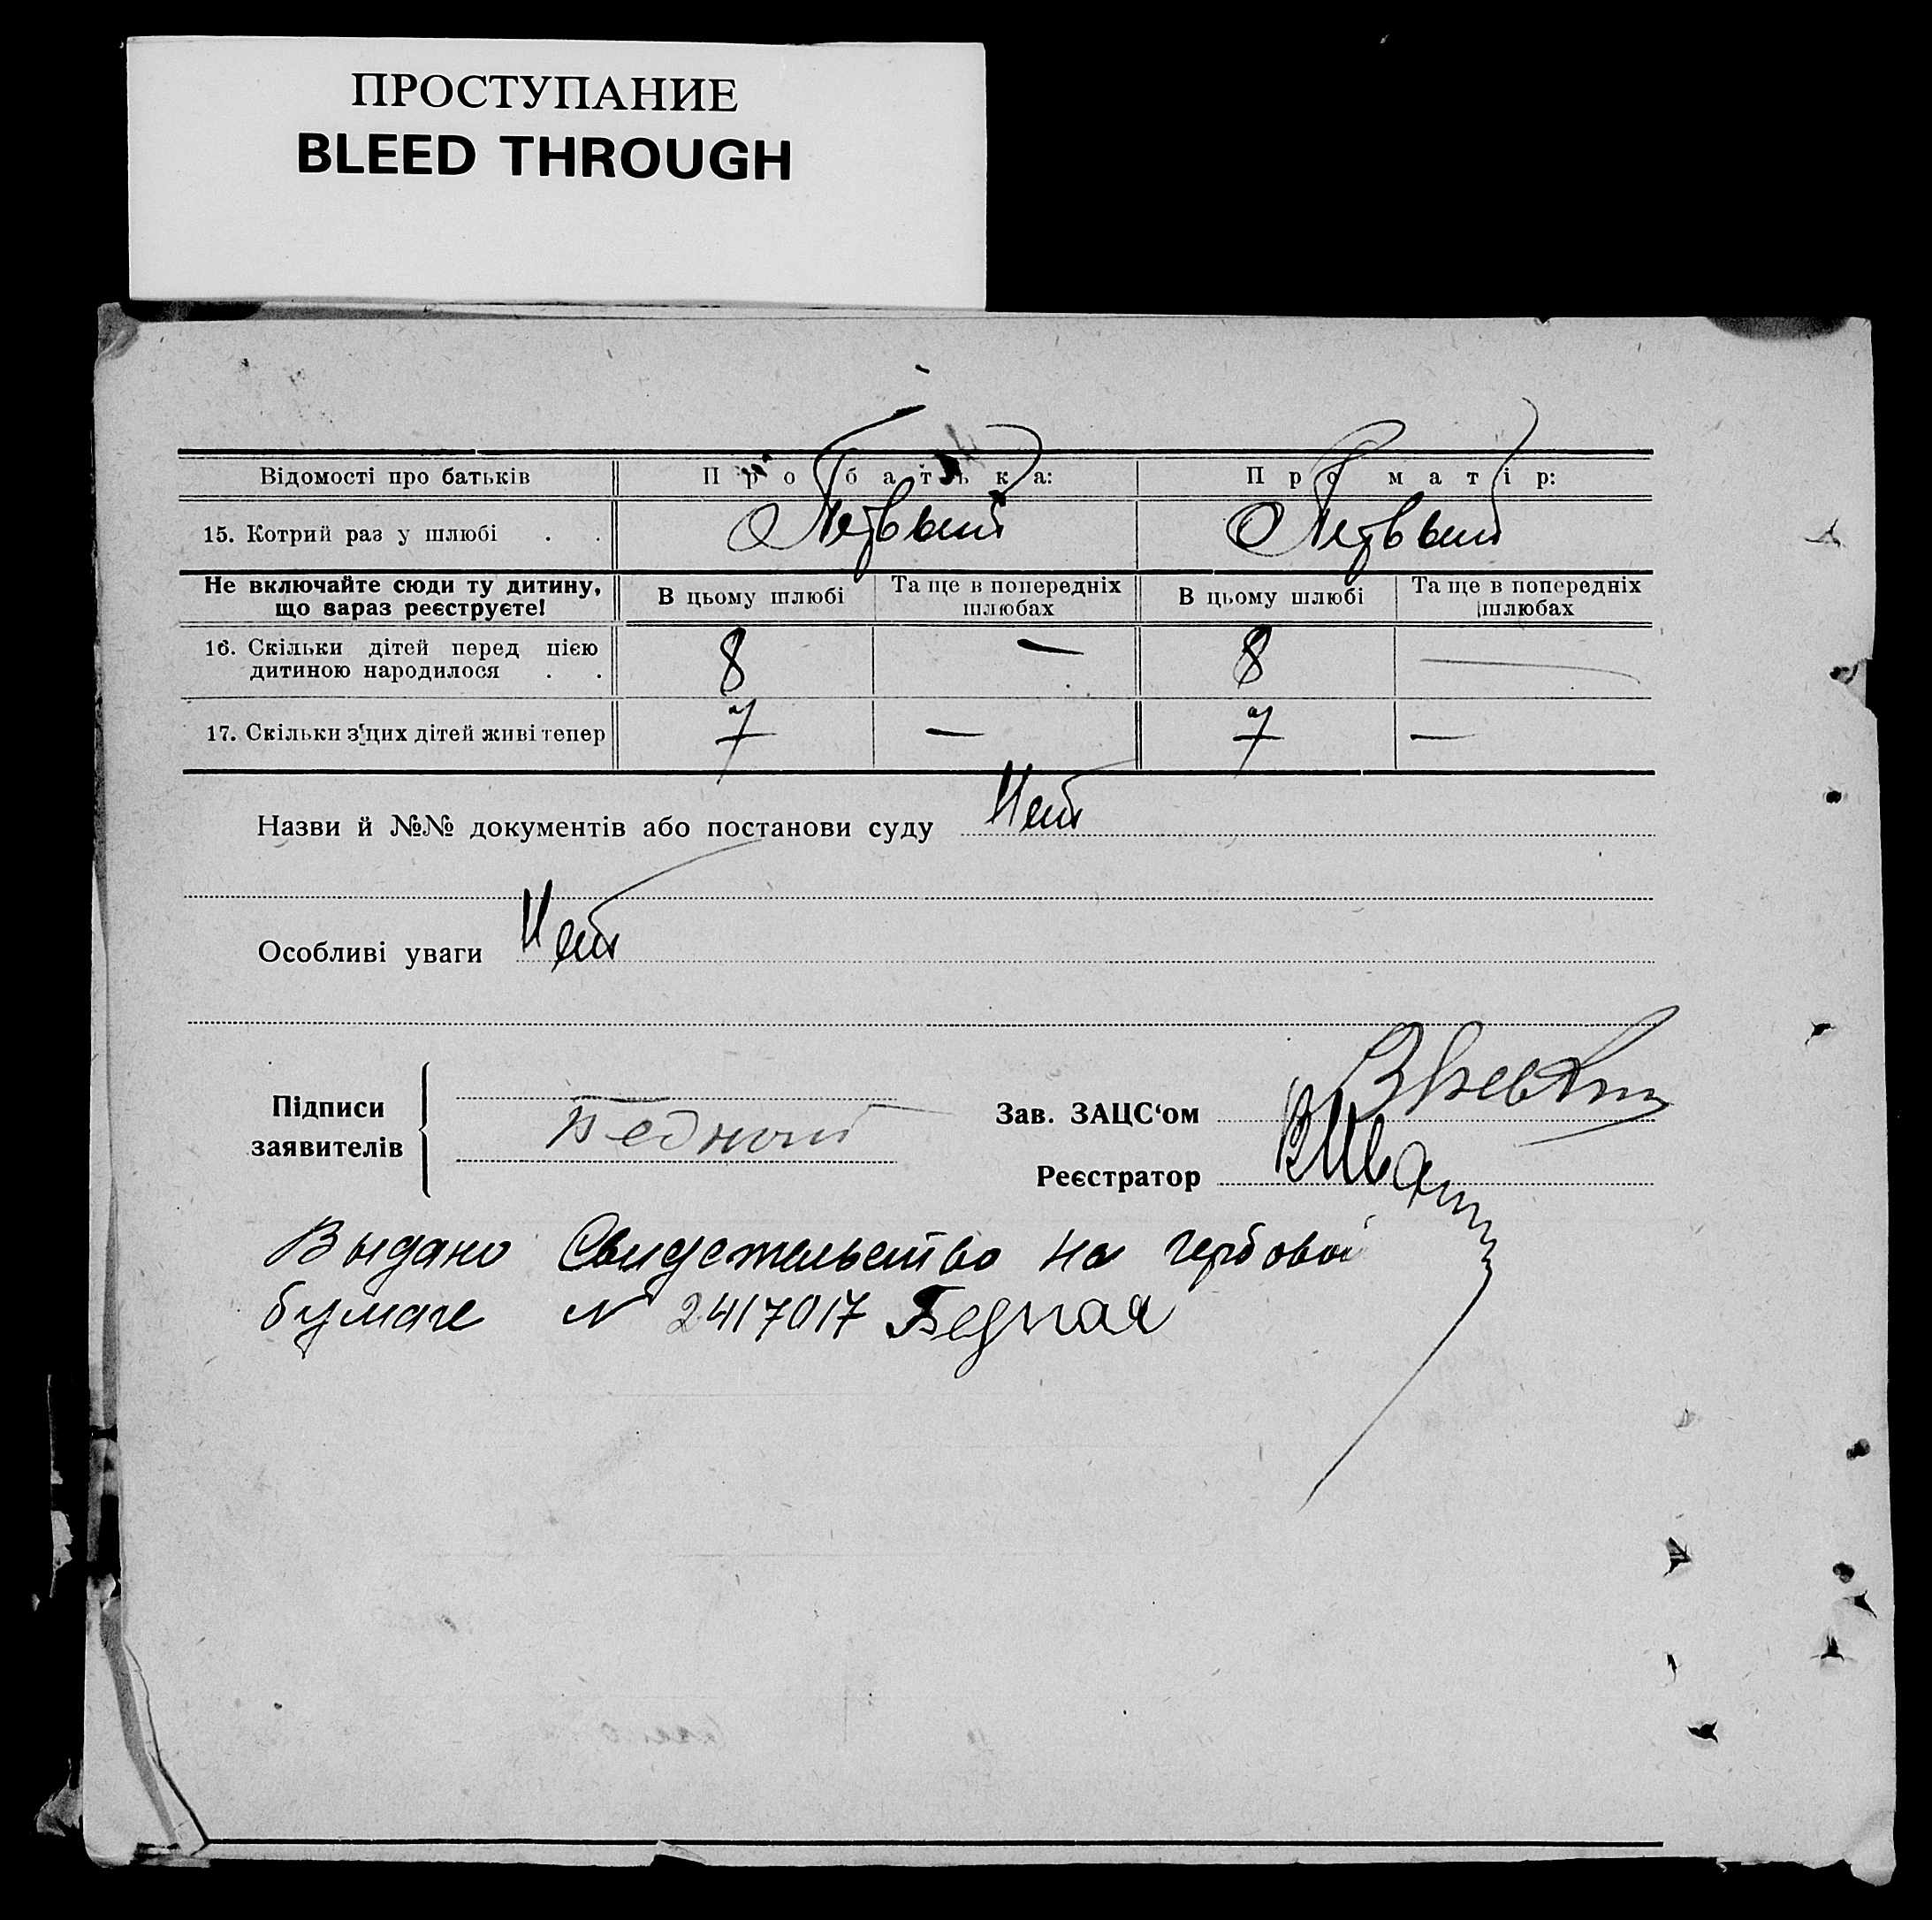 ПРОСТУПАНИЕ
BLEED THROUGH
Відомості про батьків Про батька: Про матір:
15. Котрий раз у шлюбі . . Первый Первый
Не включайте сюди ту дитину, що зараз реєструєте! В цьому шлюбі Та ще в попередніх шлюбах В цьому шлюбі Та ще в попередніх шлюбах
16. Скільки дітей перед цією дитиною народилося . . 8 — 8 —
17. Скільки з цих дітей живі тепер 7 — 7 —
Назви й №№ документів або постанови суду Нет
Особливі уваги Нет
Підписи заявителів Бедный
Зав. ЗАЦС‘ом
Реєстратор
Выдано Свидетельство на гербовой
бумаге № 2417017 Бедная